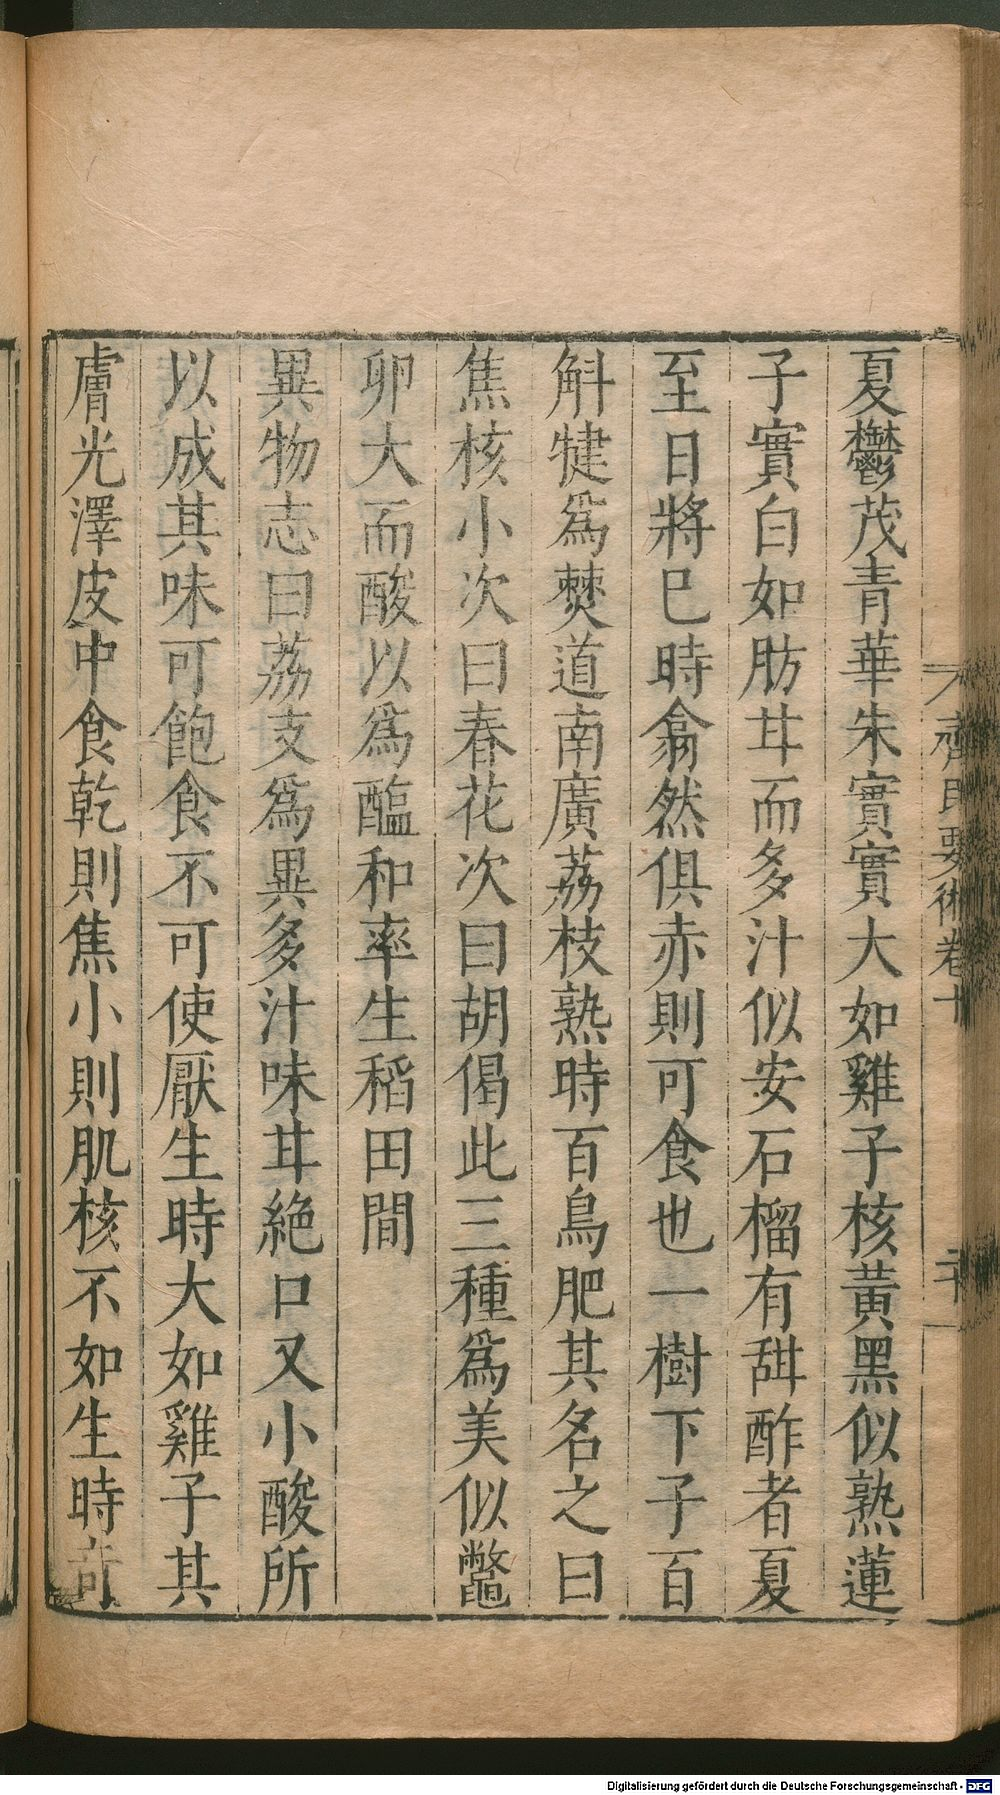 夏鬱茂青華朱實實大如雞子核黃黑似熟蓮
子實白如肪甘而多汁似安石榴有甜酢者夏
至日將巳時翕然俱赤則可食也一樹下子百
斛犍為僰道南廣荔枝熟時百鳥肥其名之曰
焦核小次曰春花次曰胡偈此三種為美似鼈
卵大而酸以為醢和率生稻田間
異物志曰荔支為異多汁味甘絕口又小酸所
以成其味可飽食不可使厭生時大如雞子其
膚光澤皮中食乾則焦小則肌核不如生時奇
齊民要術卷十
二十
Digitalisierung gefördert durch die Deutsche Forschungsgemeinschaft - DFG